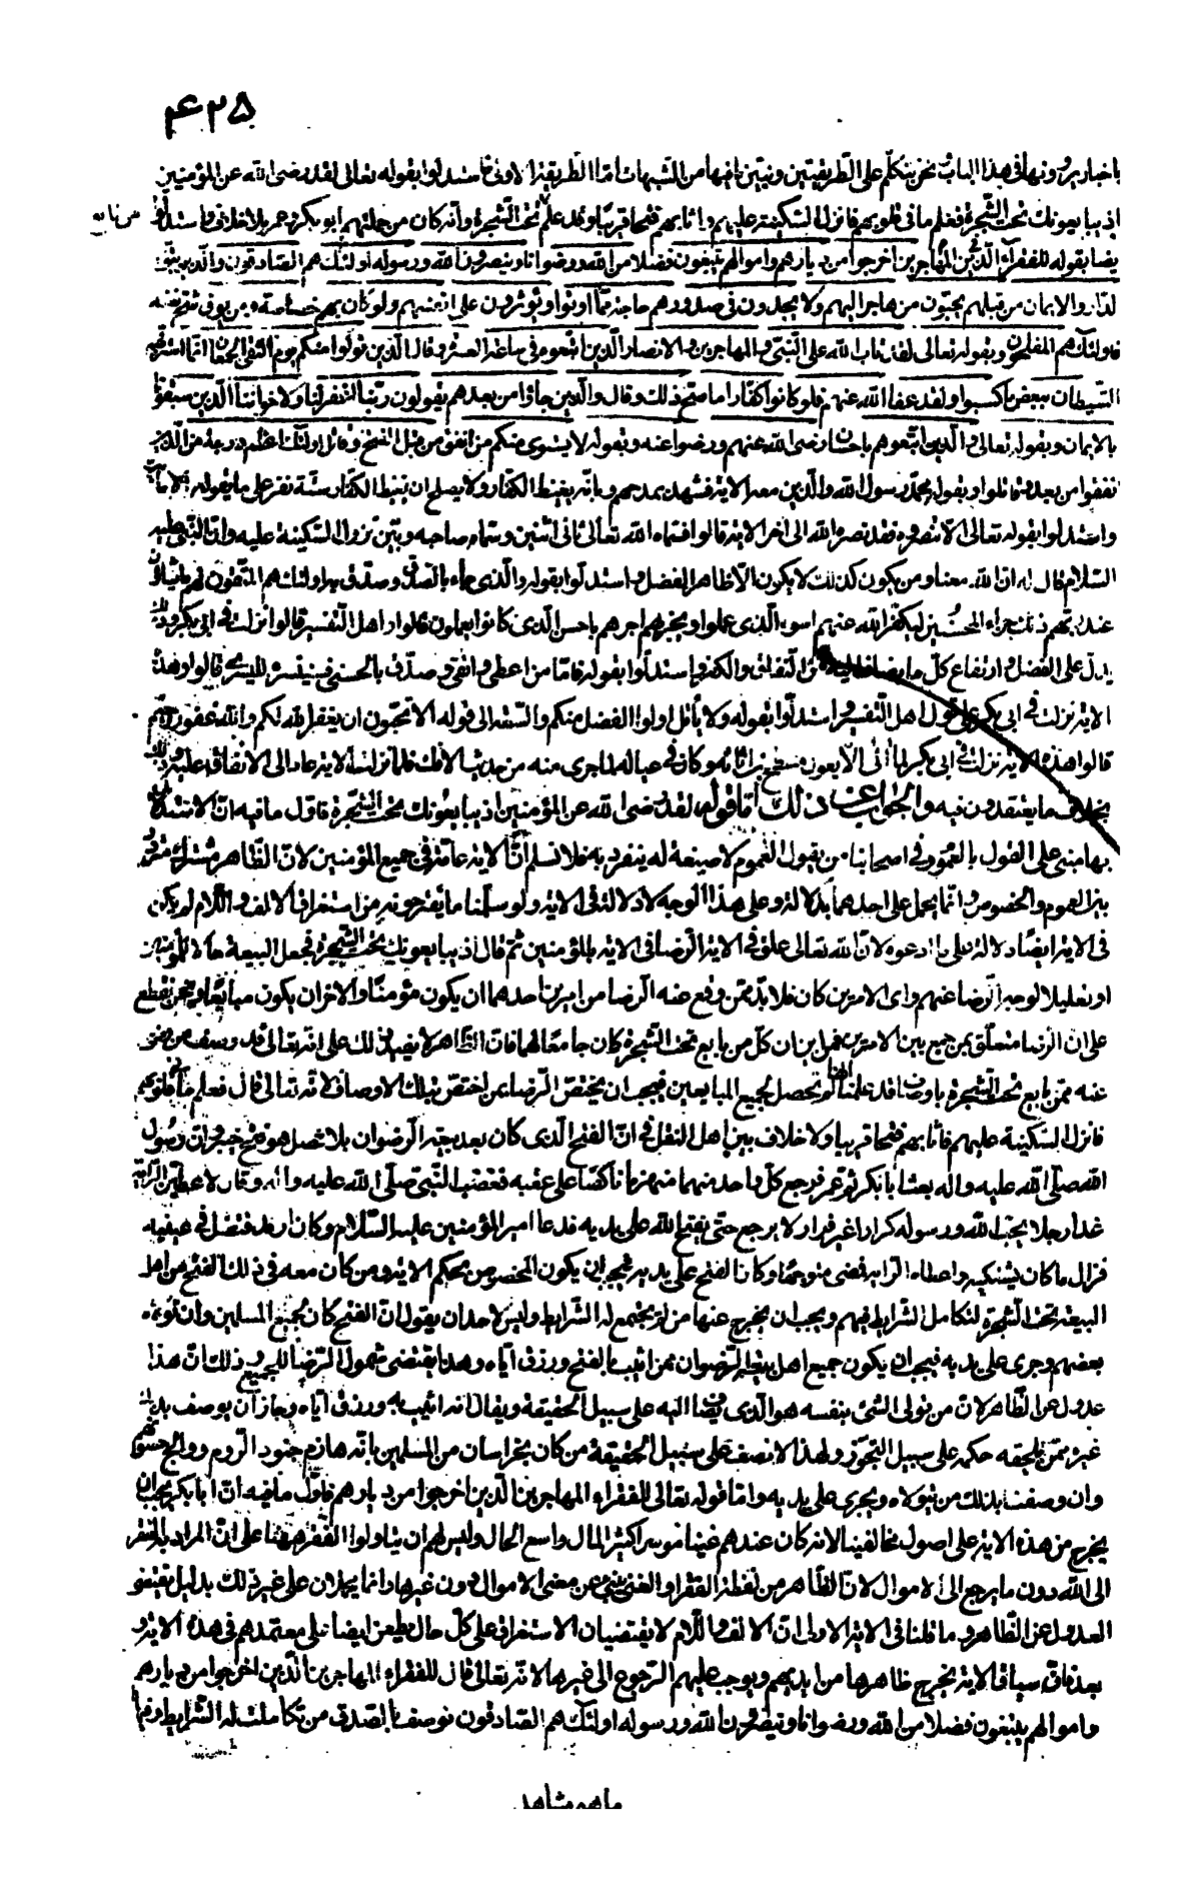 ۴۲۵
باخبار يروونها في هذا الباب ونحن نتكلم على الطريقتين ونبين ما فيهما من الشبهات اما الطريقة الاولى فاستدلوا بقوله تعالى لقد رضى الله عن المؤمنين
اذ يبايعونك تحت الشجرة فعلم ما في قلوبهم فانزل السكينة عليهم واثابهم فتحا قريبا وقد علم تحت الشجرة وانه كان من جملتهم ابو بكر وعمر بلا خلاف واستدلوا
ايضا بقوله للفقراء المهاجرين الذين اخرجوا من ديارهم واموالهم يبتغون فضلا من الله ورضوانا وينصرون الله ورسوله اولئك هم الصادقون والذين تبوؤا
الدار والايمان من قبلهم يحبون من هاجر اليهم ولا يجدون في صدورهم حاجة مما اوتوا ويؤثرون على انفسهم ولو كان بهم خصاصة ومن يوق شح نفسه
فاولئك هم المفلحون وبقوله تعالى لقد تاب الله على النبي والمهاجرين والانصار الذين اتبعوه في ساعة العسرة وقال الذين تولوا منكم يوم التقى الجمعان انما استزلهم
الشيطان ببعض ما كسبوا ولقد عفا الله عنهم فلو كانوا كفارا ما صح ذلك وقال والذين جاؤا من بعدهم يقولون ربنا اغفر لنا ولاخواننا الذين سبقونا
بالايمان وبقوله تعالى والذين اتبعوهم باحسان رضى الله عنهم ورضوا عنه وبقوله لا يستوى منكم من انفق من قبل الفتح وقاتل اولئك اعظم درجة من الذين
انفقوا من بعد وقاتلوا وبقوله محمد رسول الله والذين معه الاية فشهد بمدحهم وبانه يغيظ الكفار ولا يصلح ان يغيظ الكفار ستة نفر على ما يقوله الامامية
واستدلوا بقوله تعالى الا تنصروه فقد نصره الله الى اخر الاية قالوا فسماه الله تعالى ثانى اثنين وسماه صاحبه وبين نزول السكينة عليه وان النبي عليه
السلام قال له ان الله معنا ومن يكون كذلك لا يكون الا ظاهر الفضل واستدلوا بقوله والذى جاء بالصدق وصدق به اولئك هم المتقون لهم ما يشاؤن
عند ربهم ذلك جزاء المحسنين ليكفر الله عنهم اسوء الذى عملوا ويجزيهم اجرهم باحسن الذى كانوا يعملون قالوا اهل التفسير قالوا نزلت في ابى بكر وذلك
يدل على الفضل وارتفاع كل ما يضاف اليه من النفاق والكفر واستدلوا بقوله فاما من اعطى واتقى وصدق بالحسنى فسنيسره لليسرى قالوا وهذه
الاية نزلت في ابى بكر على قول اهل التفسير واستدلوا بقوله ولا يأتل اولوا الفضل منكم والسعة الى قوله الا تحبون ان يغفر الله لكم والله غفور رحيم
قالوا هذه الاية نزلت في ابى بكر لما الى الا يعون مسطح بن اثاثة وكان في عياله لما جرى منه من حديث الافك فلما نزلت الاية عاد الى الانفاق عليه وذلك
بخلاف ما يعتقدون فيه والجواب عن ذلك اما قوله لقد رضى الله عن المؤمنين اذ يبايعونك تحت الشجرة فاول ما فيه ان الاستدلال
بها مبنى على القول بالعموم وفي اصحابنا من يقول العموم لا صيغة له ينفرد به فلا نسلم ان الاية عامة في جميع المؤمنين لان الظاهر مشترك متردد
بين العموم والخصوص وانما يحمل على احدهما بدلالة وعلى هذا الوجه لا دلالة في الاية ولو سلمنا ما يقترحونه من استغراق الالف واللام لم يكن
في الاية ايضا دلالة على ما ادعوه لان الله تعالى علق في الاية الرضا في الاية بالمؤمنين ثم قال اذ يبايعونك تحت الشجرة فجعل البيعة حالا للمؤمنين
او تعليلا لوجه الرضا عنهم واى الامرين كان فلا بد ممن وقع عنه الرضا من امرين احدهما ان يكون مؤمنا والاخر ان يكون مبايعا ونحن نقطع
على ان الرضا متعلق بمن جمع بين الامرين فمن اين ان كل من بايع تحت الشجرة كان جامعا لهما فان الظاهر لا يفيد ذلك على انه تعالى قد وصف من رضى
عنه ممن بايع تحت الشجرة باوصاف قد علمنا انها لم تحصل لجميع المبايعين فيجب ان يختص الرضا بمن اختص بتلك الاوصاف لانه تعالى قال فعلم ما في قلوبهم
فانزل السكينة عليهم فاثابهم فتحا قريبا ولا خلاف بين اهل النقل في ان الفتح الذى كان بعد بيعة الرضوان بلا فصل هو فتح خيبر وان رسول
الله صلى الله عليه واله بعث ابا بكر ثم عمر فرجع كل واحد منهما منهزما ناكصا على عقبه فغضب النبي صلى الله عليه واله وقال لاعطين الراية
غدا رجلا يحب الله ورسوله كرارا غير فرار لا يرجع حتى يفتح الله على يديه فدعا امير المؤمنين عليه السلام وكان ارمد فتفل في عينيه
فزال ما كان يشتكيه واعطاه الراية فمضى متوجها وكان الفتح على يديه فيجب ان يكون المخصوص بحكم الاية ومن كان معه في ذلك الفتح من اهل
البيعة تحت الشجرة لتكامل الشرايط فيهم ويجب ان يخرج عنها من لم يجتمع له الشرايط وليس لاحد ان يقول ان الفتح كان لجميع المسلمين وان تولاه
بعضهم وجرى على يديه فيجب ان يكون جميع اهل بيعة الرضوان ممن اثيب بالفتح ورزق اياه وهذا يقتضى شمول الرضا للجميع وذلك ان هذا
عدول عن الظاهر لان من تولى الشئ بنفسه هو الذى يضاف اليه على سبيل الحقيقة ويقال انه اثيب به ورزق اياه ولو جاز ان يوصف بذلك
غيره ممن يلحقه حكمه على سبيل التجوز ولهذا لا نصف على سبيل الحقيقة من كان بخراسان من المسلمين بانه هازم جنود الروم ووالج حصونهم
وان وصفنا بذلك من تولاه ويجرى على يديه واما قوله تعالى للفقراء المهاجرين الذين اخرجوا من ديارهم فاول ما فيه ان ابا بكر يجب ان
يخرج من هذه الاية على اصول مخالفينا لانه كان عندهم غنيا موسرا كثير المال واسع الحال وليس لهم ان يتاولوا الفقر ههنا على ان المراد به الفقر
الى الله دون ما يرجع الى الاموال لان الظاهر من لفظة الفقر او الغنى ينبئ عن معنى الاموال دون غيرها وانما يحملان على غير ذلك بدليل يقتضى
العدول عن الظاهر وما قلنا في الاية الاولى ان الالف واللام لا يقتضيان الاستغراق على كل حال يطعن ايضا على معتمدهم في هذه الاية و
بعد فان سياق الاية يخرج ظاهرها من ايديهم ويوجب عليهم الرجوع الى غيرها لانه تعالى قال للفقراء المهاجرين الذين اخرجوا من ديارهم
واموالهم يبتغون فضلا من الله ورضوانا وينصرون الله ورسوله اولئك هم الصادقون فوصف بالصدق من تكاملت له الشرايط ومنها
ما هو مشاهد